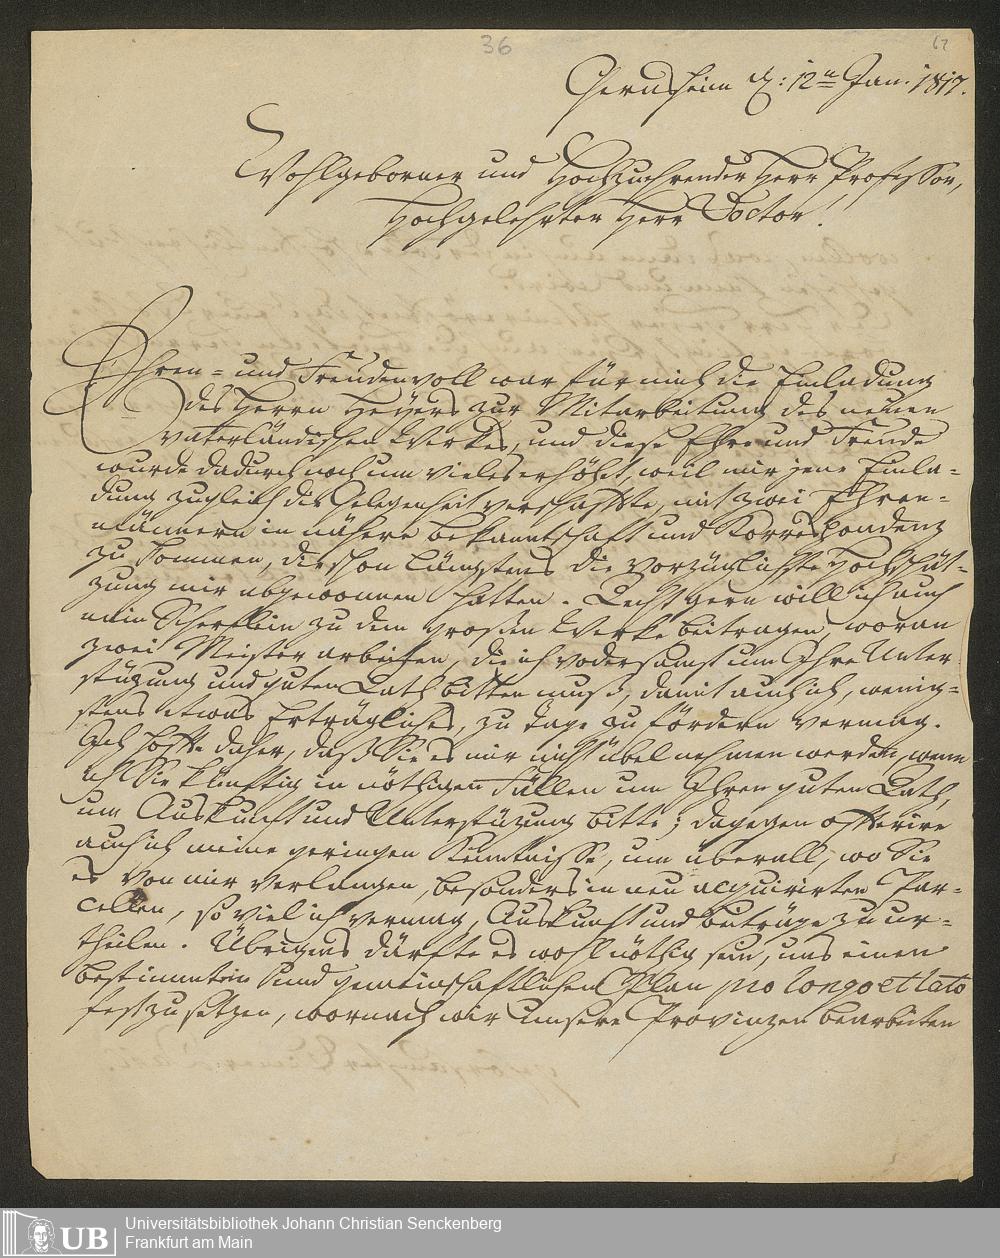 36
67
Gernsheim d: 12n Jan. 1817.
Wohlgeborner und Hochzuehrender Herr Professor,
Hochgelehrter Herr Doctor!
Ehren- und Freudenvoll war für mich die Einladung
des Herrn Heyers zur Mitarbeitung des neuen
vaterländischen Werkes, und diese Ehre und Freude
wurde dadurch noch um vieles erhöht, weil mir jene Einla-
dung zugleich die Gelegenheit verschaffte, mit zwei Ehren-
männern in nähere bekanntschaft und Korrespondenz
zu kommen, die schon längstens die vorzüglichste Hochschät-
zung mir abgewonnen hatten. Recht gern will ich auch
mein Scherflein zu dem großen Werke beitragen, woran
zwei Meister arbeiten, die ich vodersamst um Ihre Unter-
stüzung und guten Rath bitten muß, damit auch ich, wenig-
stens etwas Erträgliches, zu tage zu fördern vermag.
Ich hoffe daher, daß Sie es mir nicht übel nehmen werden, wenn
ich Sie künftig in nöthigen Fällen um Ihren guten Rath,
um Auskunft und Unterstüzung bitte; dagegen offerire
auch ich meine geringen Kenntnisse, um überall, wo Sie
es von mir verlangen, besonders in neu acquirirten Par-
cellen, so viel ich vermag, Auskunft und beiträge zu er-
theilen. Übrigens därfte es wohl nöthig sein, uns einen
bestimmten und gemeinschaftlichen Plan pro longo et lato
festzusetzen, wornach wir unsere Provinzen bearbeiten
UB
Universitätsbibliothek Johann Christian Senckenberg
Frankfurt am Main